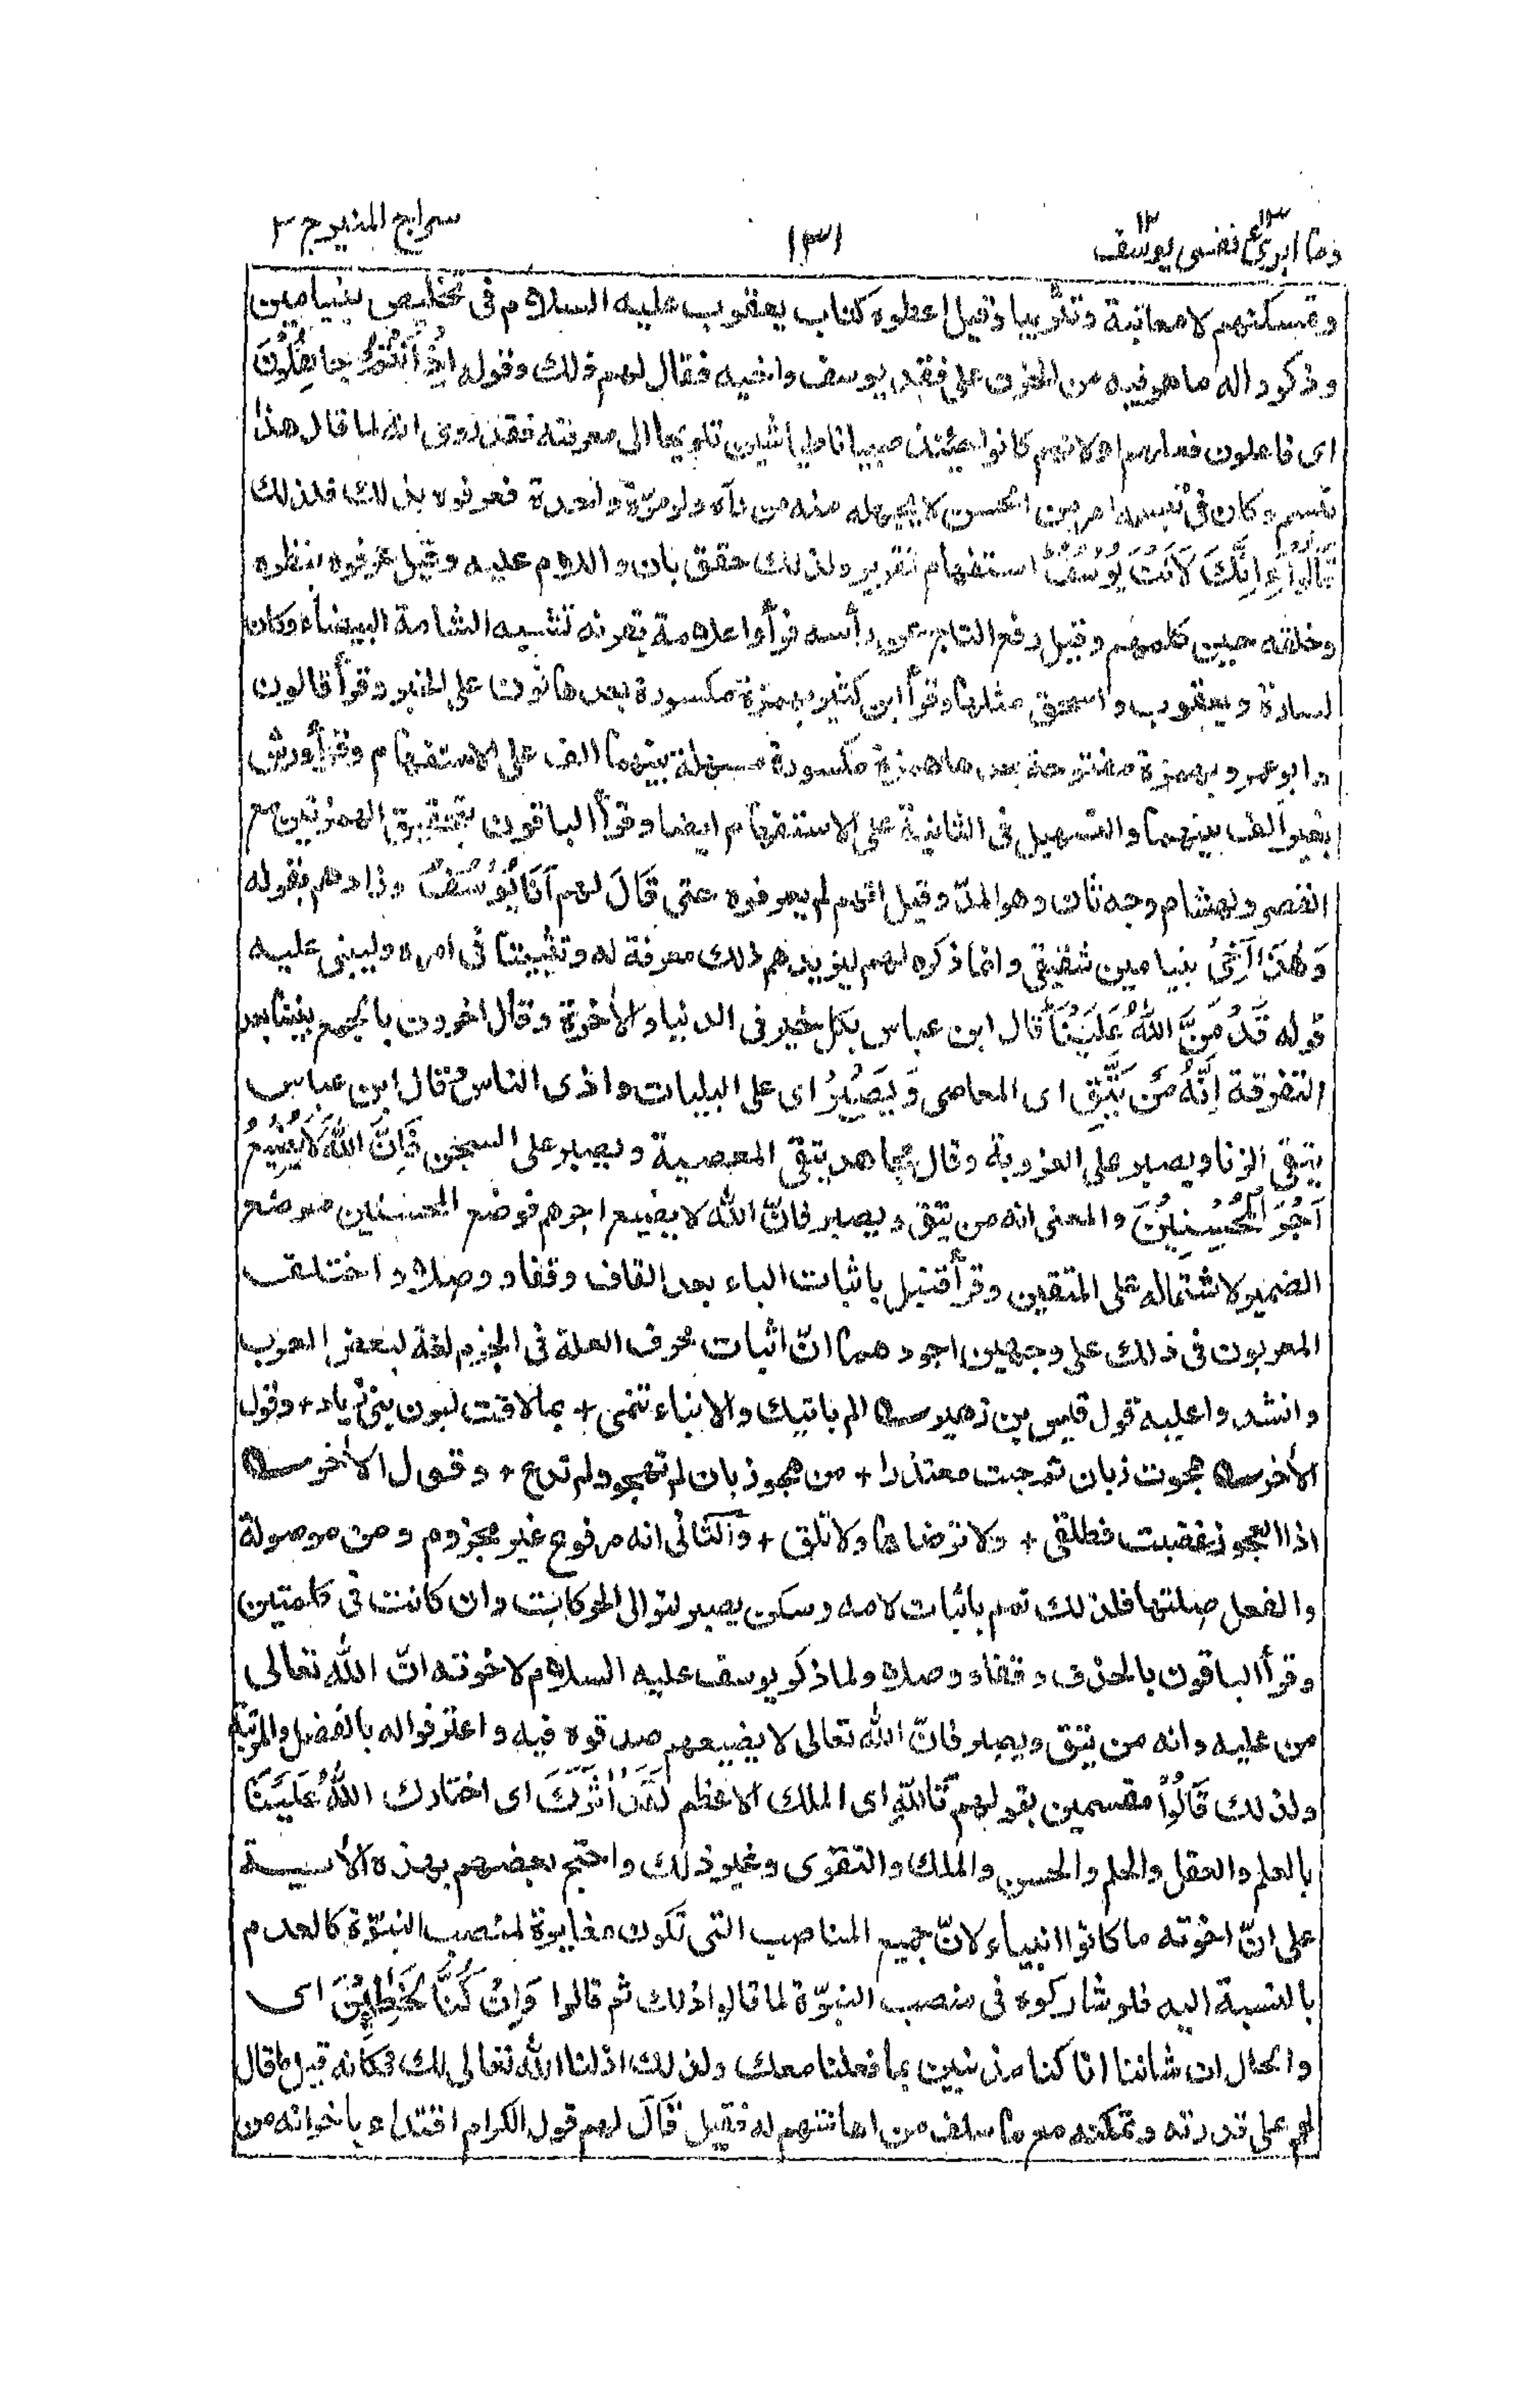 وما ابرئ ۱۳ نفسی یوسف ۱۲
۱۳۱
سراج المنیر ج ۲
وتمسكنهم لا معاتبة وتثريبا وقيل اعطوه كتاب يعقوب عليه السلام فى تخليص بنيامين
وذكروا له ما هو فيه من الحزن على فقد يوسف واخيه فقال لهم ذلك وقوله اِذْ اَنْتُمْ جَاهِلُوْنَ
اى فاعلون فعلهم او لانهم كانوا حينئذ صبيانا طياشين تلويحا الى معرفته فقد روى انه لما قال هذا
تبسم وكان فى تبسمه امر من الحسن لا يجهله منه من رآه ولو مرّة واحدة فعرفوه بذلك فلذلك
قَالُوْٓا ءَاِنَّكَ لَاَنْتَ يُوْسُفُ استفهام تقرير ولذلك حقق بان واللام عليه وقيل عرفوه بنظره
وخلقه حين كلمهم وقيل رفع التاج عن رأسه فرأوا علامة بقرنه تشبه الشامة البيضاء وكان
لسارة ويعقوب واسحق مثلها وقرأ ابن كثير بهمزة مكسورة بعدها نون على الخبر وقرأ قالون
وابو عمرو بهمزة مفتوحة بعدها همزة مكسورة مسهلة بينهما الف على الاستفهام وقرأ ورش
بغير الف بينهما والتسهيل فى الثانية على الاستفهام ايضا وقرأ الباقون بتحقيق الهمزتين مع
القصر ولهشام وجه ثان وهو المدّ وقيل انهم لم يعرفوه حتى قَالَ لهم اَنَا يُوْسُفُ وزادهم بقوله
وَهٰذَآ اَخِيْ بنيامين شقيقى وانما ذكره لهم ليزيدهم ذلك معرفة له وتثبيتا فى امره وليبنى عليه
قوله قَدْ مَنَّ اللهُ عَلَيْنَا قال ابن عباس بكل خير فى الدنيا والأخرة وقال اخرون بالجمع بيننا بعد
التفرقة اِنَّهٗ مَنْ يَّتَّقِ اى المعاصى وَيَصْبِرْ اى على البليات واذى الناس قال ابن عباس
يتقى الزنا ويصبر على العزوبة وقال مجاهد يتقى المعصية ويصبر على السجن فَاِنَّ اللهَ لَا يُضِيْعُ
اَجْرَ الْمُحْسِنِيْنَ والمعنى انه من يتق ويصبر فانّ الله لا يضيع اجرهم فوضع المحسنين موضع
الضمير لاشتماله على المتقين وقرأ قنبل باثبات الياء بعد القاف وقفا ووصلا واختلف
المعربون فى ذلك على وجهين اجودهما انّ اثبات حرف العلة فى الجزم لغة لبعض العرب
وانشدوا عليه قول قيس بن زهير الم ياتيك والانباء تنمى + بما لاقت لبون بنى زياد + وقول
الأخر هجوت زبان ثم جئت معتذرا + من هجو زبان لم تهجو ولم تدع + وقول الأخر
اذا العجوز غضبت فطلقى + ولا ترضاها ولا تملق + والثانى انه مرفوع غير مجزوم ومن موصولة
والفعل صلتها فلذلك تم باثبات لامه وسكن يصبر لتوالى الحركات وان كانت فى كلمتين
وقرأ الباقون بالحذف وقفا ووصلا ولما ذكر يوسف عليه السلام لاخوته انّ الله تعالى
من عليه وانه من يتق ويصبر فانّ الله تعالى لا يضيعهم صدقوه فيه واعترفوا له بالفضل والمرتبة
ولذلك قَالُوْا مقسمين بقولهم تَاللهِ اى الملك الاعظم لَقَدْ اٰثَرَكَ اى اختارك اللهُ عَلَيْنَا
بالعلم والعقل والحلم والحسن والملك والتقوى وغير ذلك واحتج بعضهم بهذه الأية
على انّ اخوته ما كانوا انبياء لانّ جميع المناصب التى تكون مغايرة لمنصب النبوّة كالعدم
بالنسبة اليه فلو شاركوه فى منصب النبوّة لما قالوا ذلك ثم قالوا وَاِنْ كُنَّا لَخٰطِـِٕيْنَ اى
والحال ان شاننا انا كنا مذنبين بما فعلنا معك ولذلك اذلنا الله تعالى لك فكانه قيل ما قال
لهم على قدرته وتمكنه مع ما سلف من اهانتهم له فقيل قَالَ لهم قول الكرام اقتداء باخوانه من